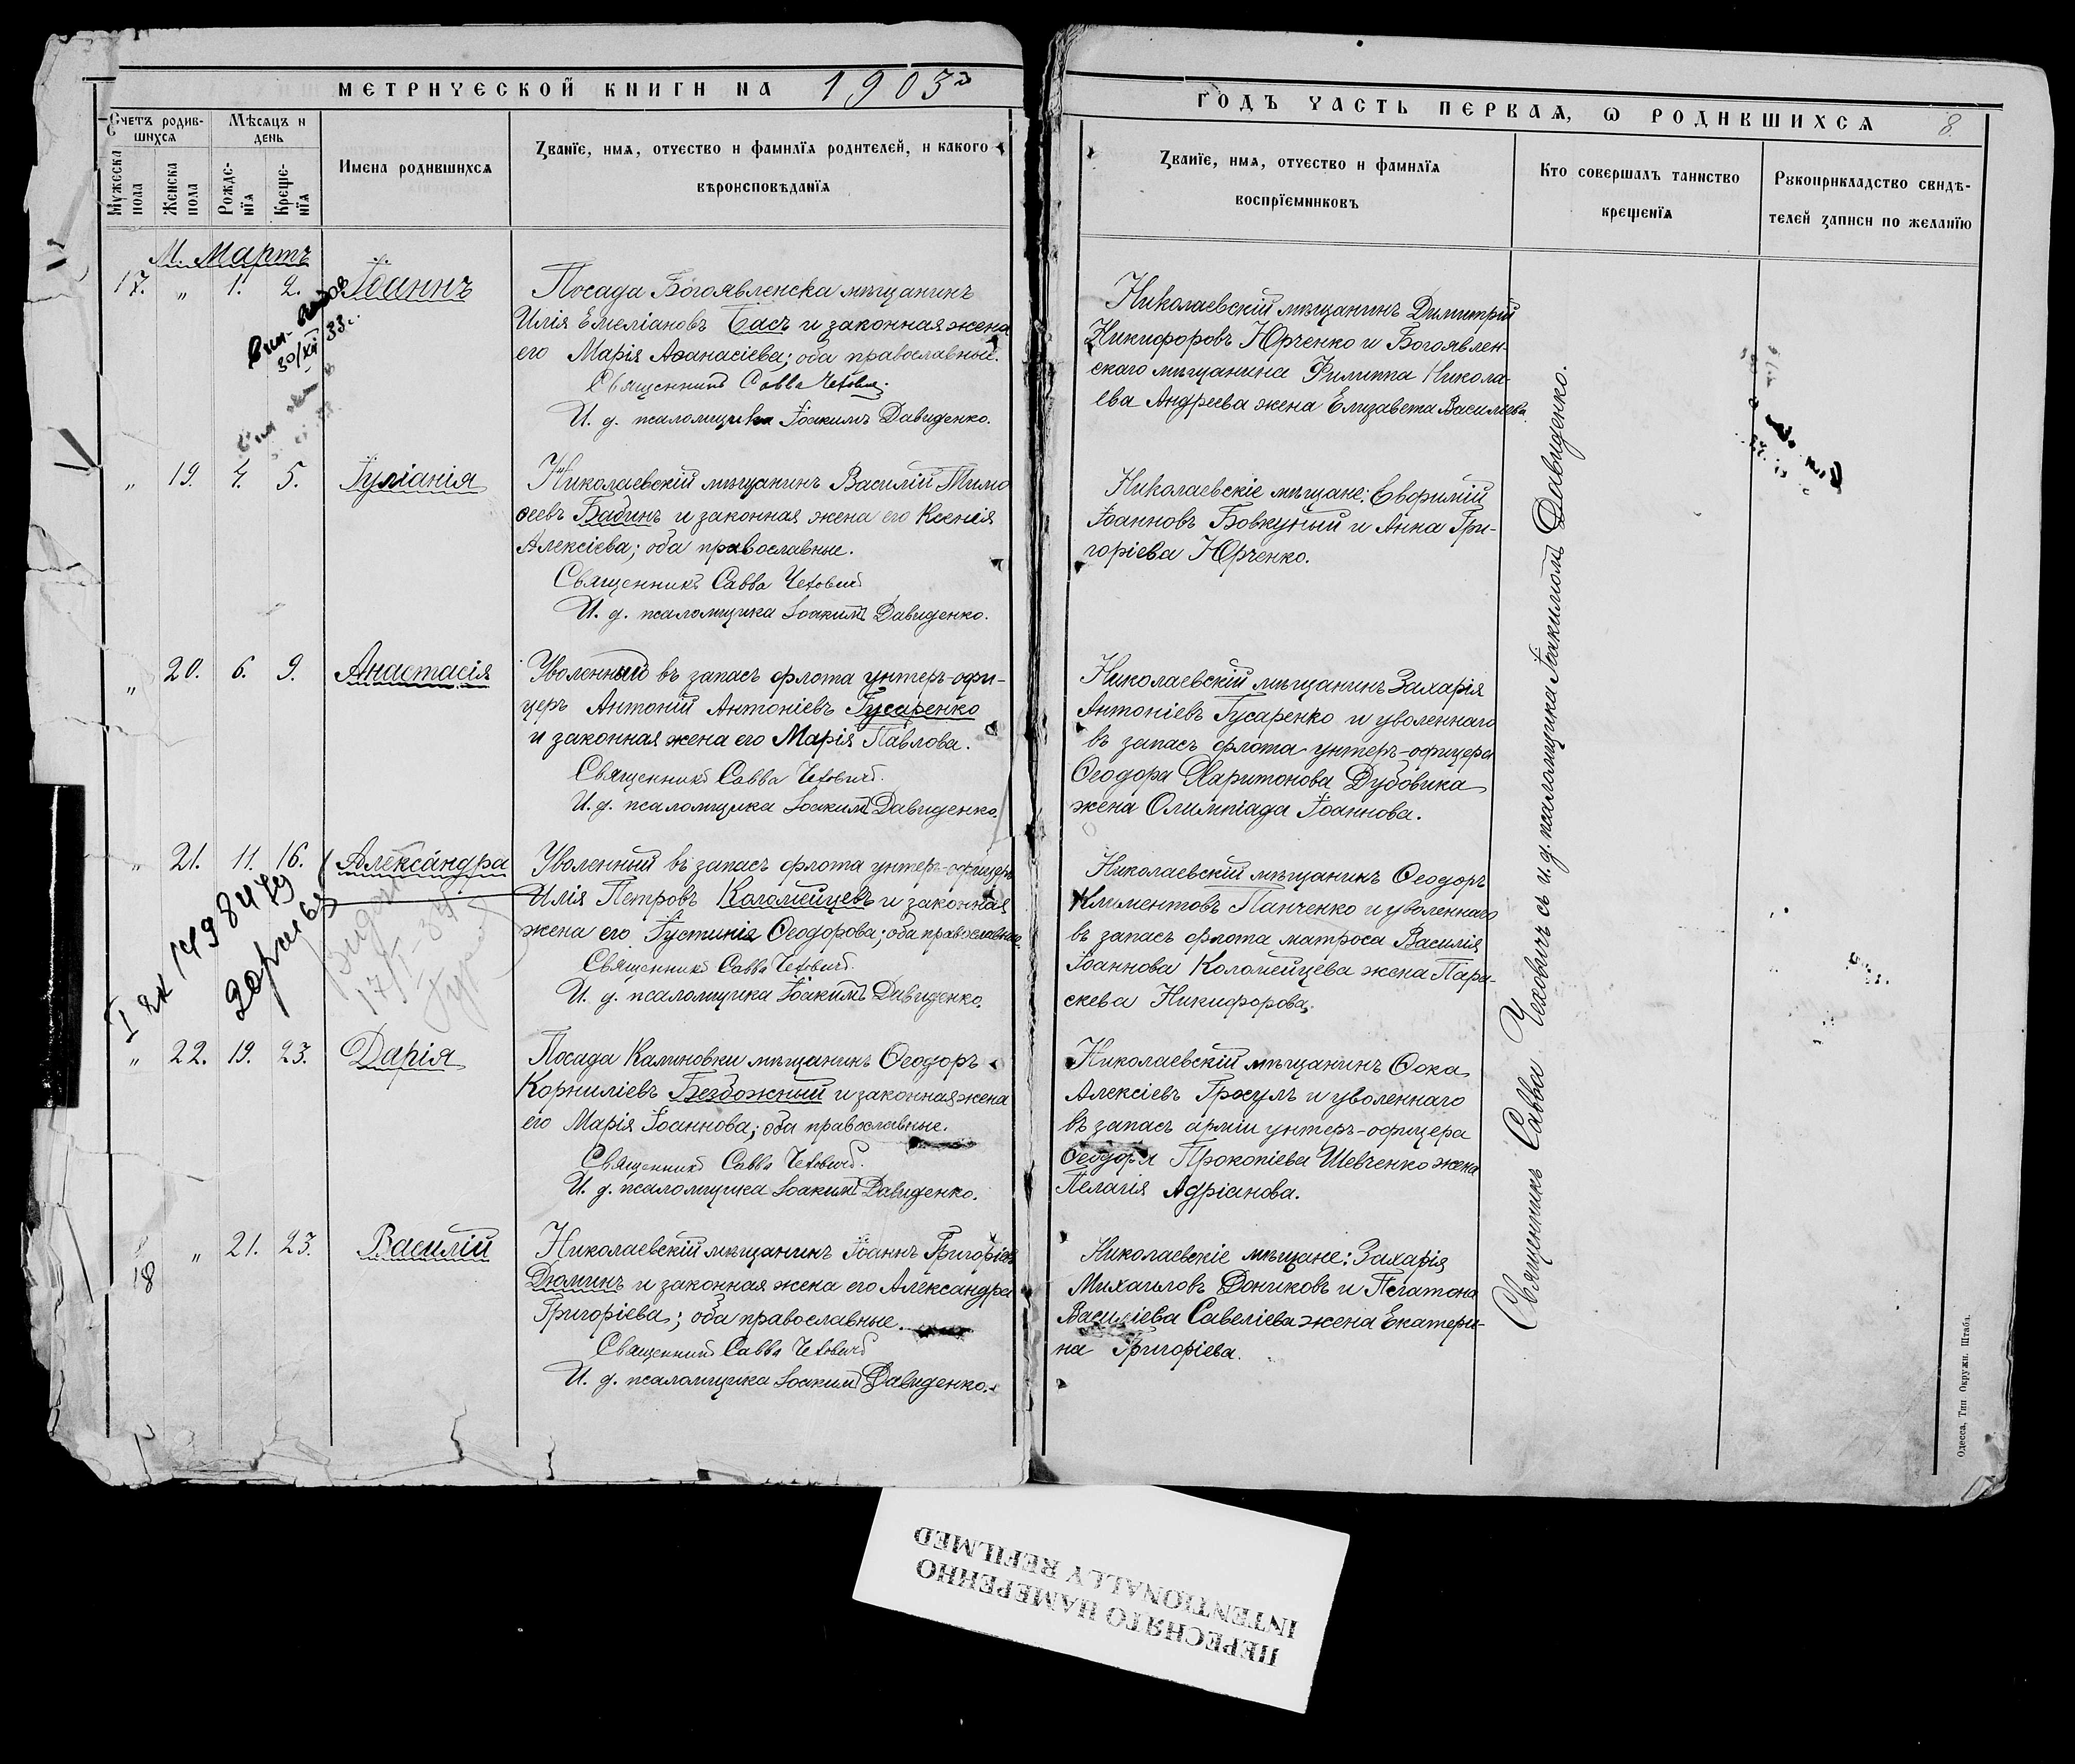 МЕТРИЧЕСКОЙ КНИГИ НА 1903
Счетъ родив-
шихся
Мѣсяцъ и
день
Мужеска
пола
Женска
пола
Рожде-
нїя
Креще-
нїя
Имена родившихся
Званїе, имя, отчество и фамилїя родителей, и какого
вѣроисповѣданїя
М. Мартъ
17. „ 1. 2. Іоаннъ
Посада Богоявленска мѣщанинъ
Илія Емеліановъ Басъ и законная жена
его Марія Аѳанасіева; оба православные.
Священникъ Савва Чеховичъ.
И. д. псаломщика Іоакимъ Давиденко.
30/XII 33г.
„ 19. 4. 5. Іуліанія
Николаевскій мѣщанинъ Василій Тимо
ѳеевъ Бабинъ и законная жена его Ксенія
Алексіева; оба православные.
Священникъ Савва Чеховичъ
И. д. псаломщика Іоакимъ Давиденко.
„ 20. 6. 9. Анастасія
Уволенный въ запасъ флота унтеръ-офи-
церъ Антоній Антоніевъ Гусаренко
и законная жена его Марія Павлова.
Священникъ Савва Чеховичъ.
И. д. псаломщика Іоакимъ Давиденко.
„ 21. 11. 16. Александра
Уволенный въ запасъ флота унтеръ-офицеръ
Илія Петровъ Коломейцевъ и законная
жена его Іустинія Ѳеодорова; оба православные.
Священникъ Савва Чеховичъ.
И. д. псаломщика Іоакимъ Давиденко.
„ 22. 19. 23. Дарія
Посада Калиновки мѣщанинъ Ѳеодоръ
Корниліевъ Безбожный и законная жена
его Марія Іоаннова; оба православные.
Священникъ Савва Чеховичъ.
И. д. псаломщика Іоакимъ Давиденко.
18 „ 21. 23. Василій
Николаевскій мѣщанинъ Іоаннъ Григоріевъ
Дюминъ и законная жена его Александра
Григоріева; оба православные.
Священникъ Савва Чеховичъ
И. д. псаломщика Іоакимъ Давиденко.
ГОДЪ ЧАСТЬ ПЕРВАЯ, Ѡ РОДИВШИХСЯ 8
Званїе, имя, отчество и фамилїя
воспрїемниковъ
Кто совершалъ таинство
крещенїя
Рукоприкладство свидѣ-
телей записи по желанїю
Николаевскій мѣщанинъ Димитрій
Никифоровъ Юрченко и Богоявлен-
скаго мѣщанина Филиппа Никола-
ева Андреева жена Елизавета Василіева.
Николаевскіе мѣщане: Евфимій
Іоанновъ Бовкуный и Анна Гри-
горіева Юрченко.
Николаевскій мѣщанинъ Захарія
Антоніевъ Гусаренко и уволеннаго
въ запасъ флота унтеръ-офицера
Ѳеодора Харитонова Дубовика
жена Олимпіада Іоаннова.
Николаевскій мѣщанинъ Ѳеодоръ
Климентовъ Панченко и уволеннаго
въ запасъ флота матроса Василія
Іоаннова Коломейцева жена Пара-
скева Никифорова.
Николаевскій мѣщанинъ Ѳока
Алексіевъ Гросулъ и уволеннаго
въ запасъ арміи унтеръ-офицера
Ѳеодора Прокопіева Шевченко жена
Пелагія Адріанова.
Николаевскіе мѣщане: Захарія
Михаиловъ Дониковъ и Платона
Василіева Савеліева жена Екатери-
на Григоріева.
Священникъ Савва Чеховичъ съ и. д. псаломщика Іоакимомъ Давиденко.
Одесса, Тип Окружн. Штаба.
ПЕРЕСНЯТО НАМЕРЕННО
INTENTIONALLY REFILMED